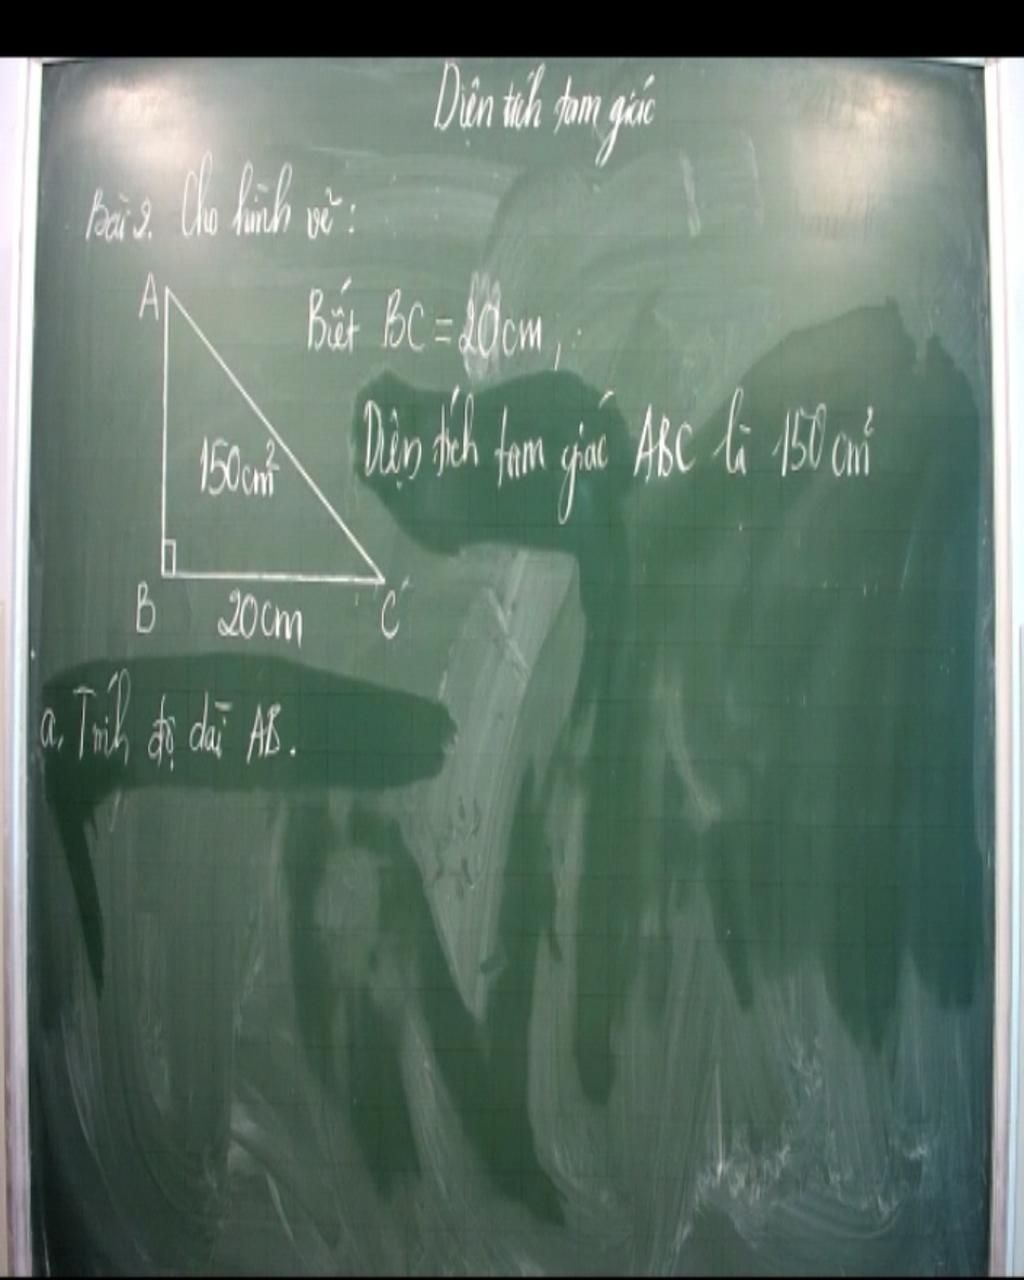 Diện tích tam giác
Bài 2. Cho hình vẽ:
A
Biết BC = 20cm,
Diện tích tam giác ABC là 150 cm²
150cm²
B
20cm
C
a, Tính độ dài AB.